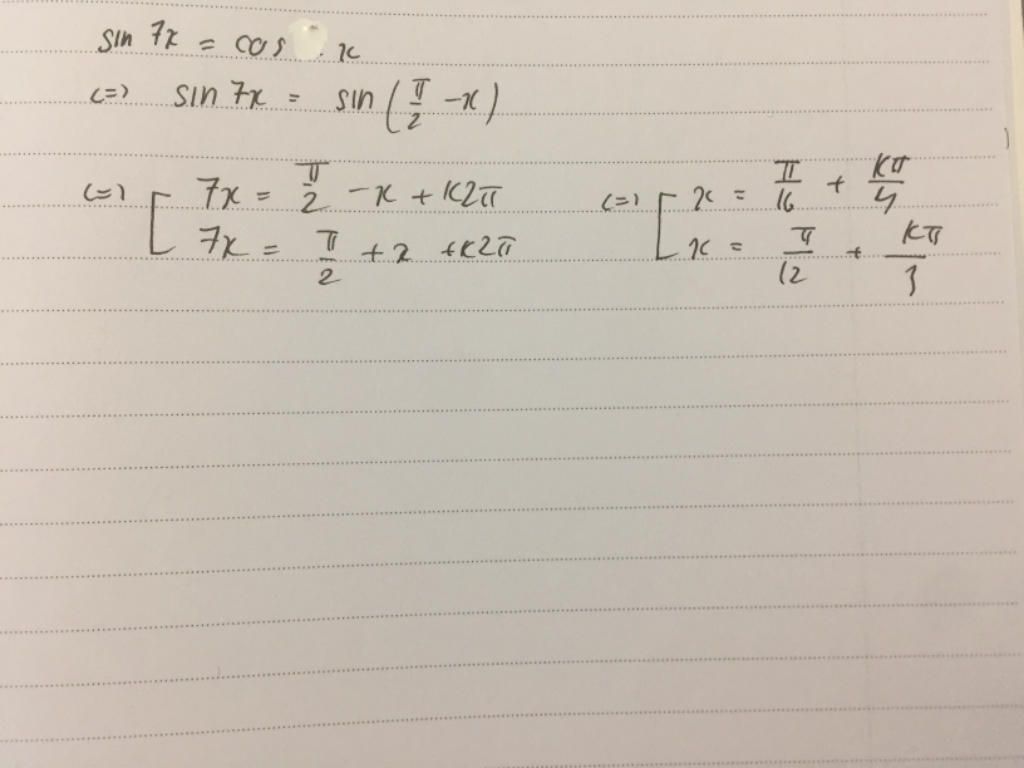 sin 7x = cos x
<=> sin 7x = sin (π/2 - x)
<=> [ 7x = π/2 - x + k2π <=> [ x = π/16 + kπ/4
7x = π/2 + x + k2π x = π/12 + kπ/3